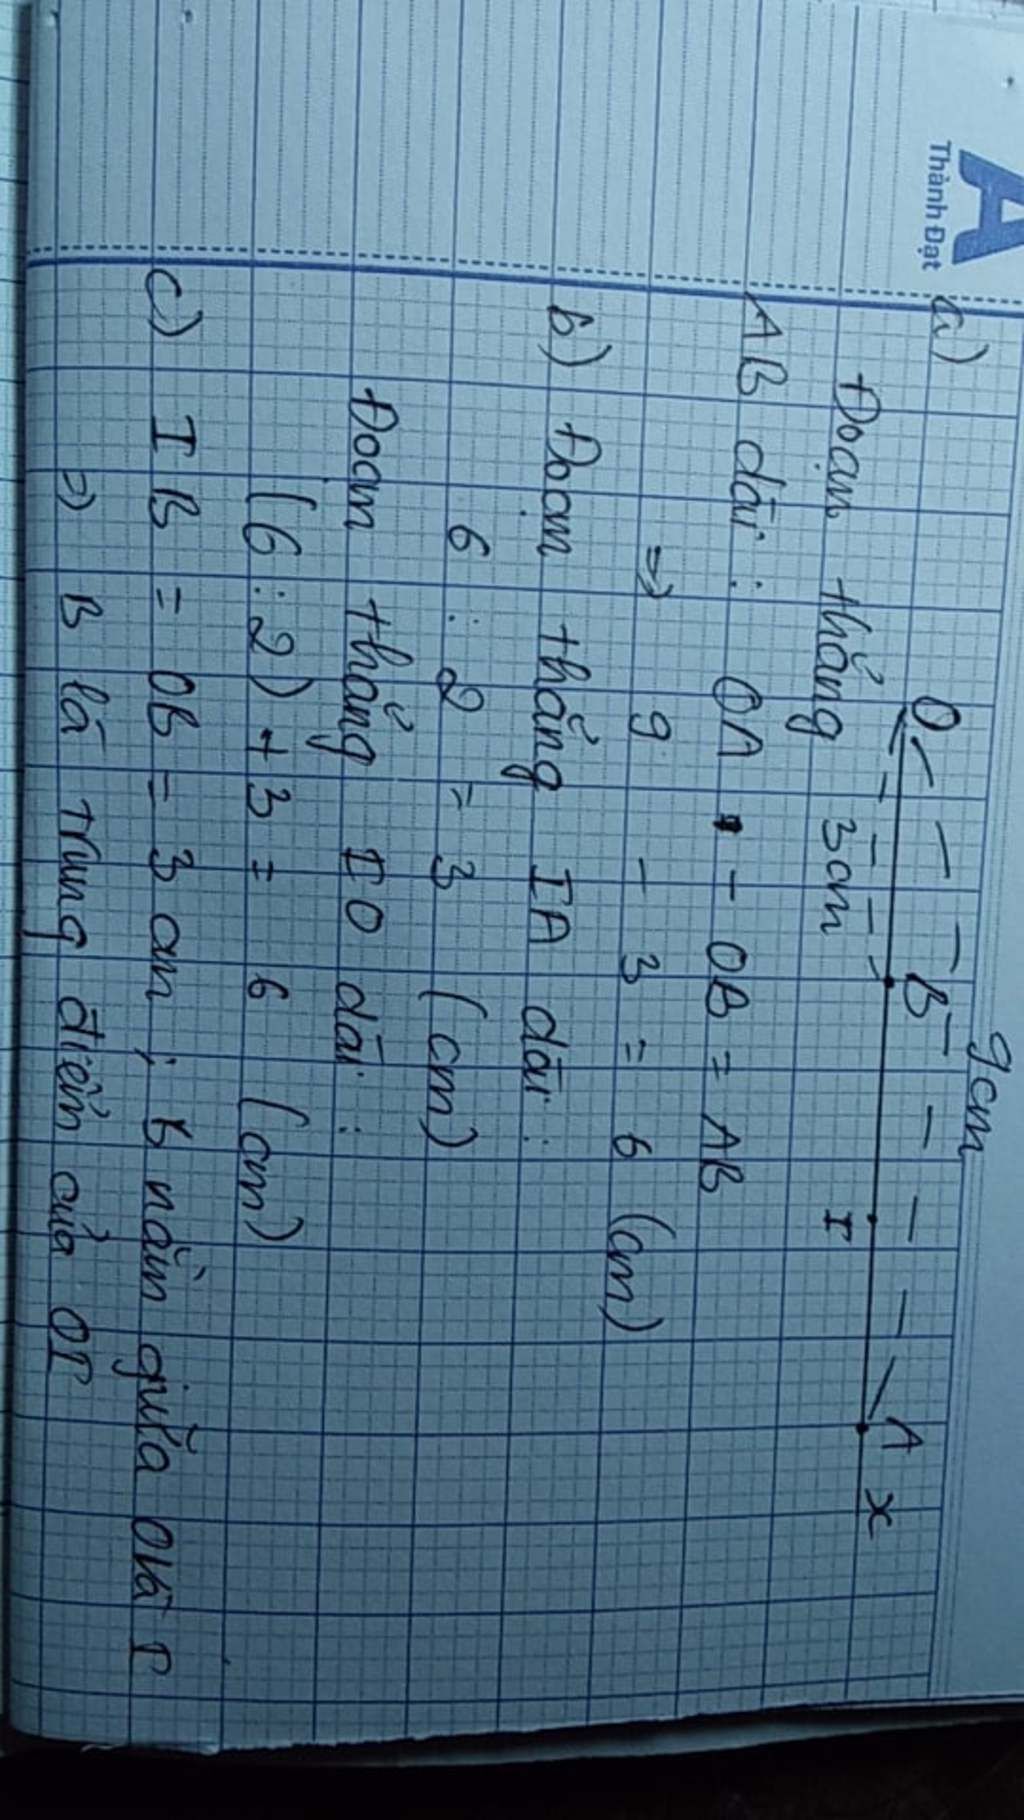 A
Thành Đạt
9cm
a)
O B A x
3cm I
Đoạn thẳng
AB dài : OA - OB = AB
=> 9 - 3 = 6 (cm)
b) Đoạn thẳng IA dài :
6 : 2 = 3 (cm)
Đoạn thẳng IO dài :
(6 : 2) + 3 = 6 (cm)
c) IB = OB = 3 cm ; B nằm giữa O và I
=> B là trung điểm của OI